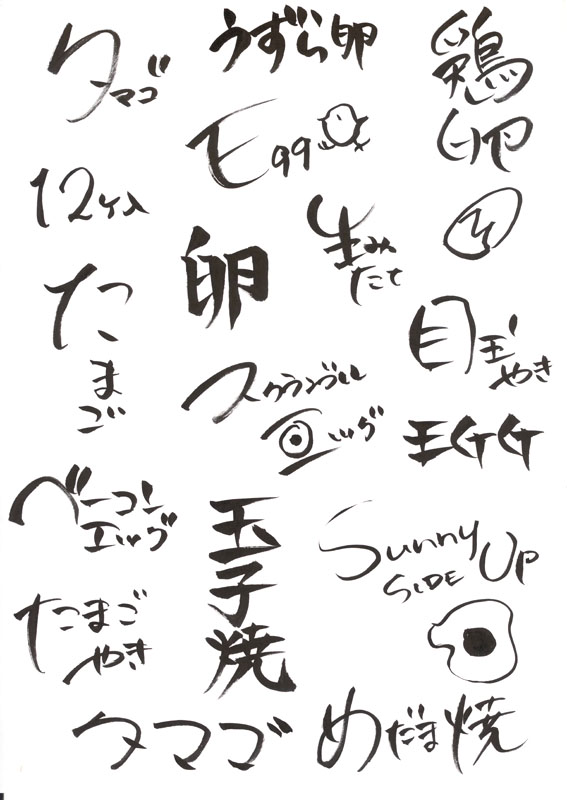 タマゴ
うずら卵
鶏卵
Egg
12ケ入
生みたて
卵
たまご
目玉やき
スクランブル
エッグ
EGG
ベーコン
エッグ
玉子焼
Sunny
SIDE UP
たまご
やき
タマゴ
めだま焼